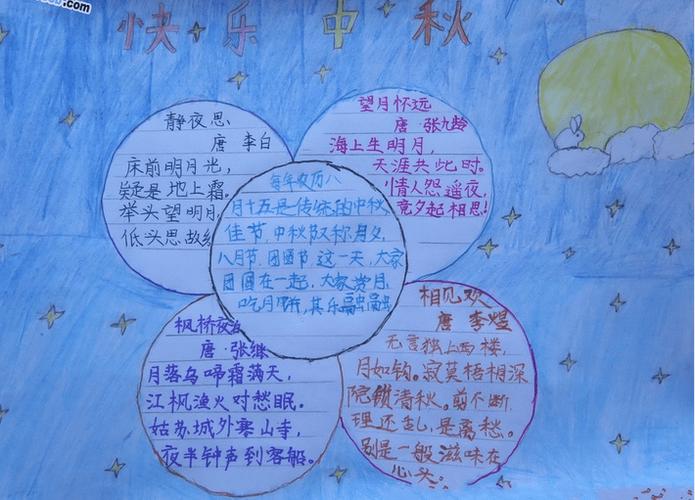 .com
快乐中秋
静夜思
唐 李白
床前明月光，
疑是地上霜。
举头望明月，
低头思故
望月怀远
唐·张九龄
海上生明月，
天涯共此时。
情人怨遥夜，
竟夕起相思!
每年农历八
月十五是传统的中秋
佳节，中秋又称月夕、
八月节、团圆节，这一天，大家
团圆在一起，大家赏月，
吃月饼，其乐融融
枫桥夜泊
唐·张继
月落乌啼霜满天，
江枫渔火对愁眠。
姑苏城外寒山寺，
夜半钟声到客船。
相见欢
唐 李煜
无言独上西楼，
月如钩。寂寞梧桐深
院锁清秋。剪不断，
理还乱，是离愁。
别是一般滋味在
心头。